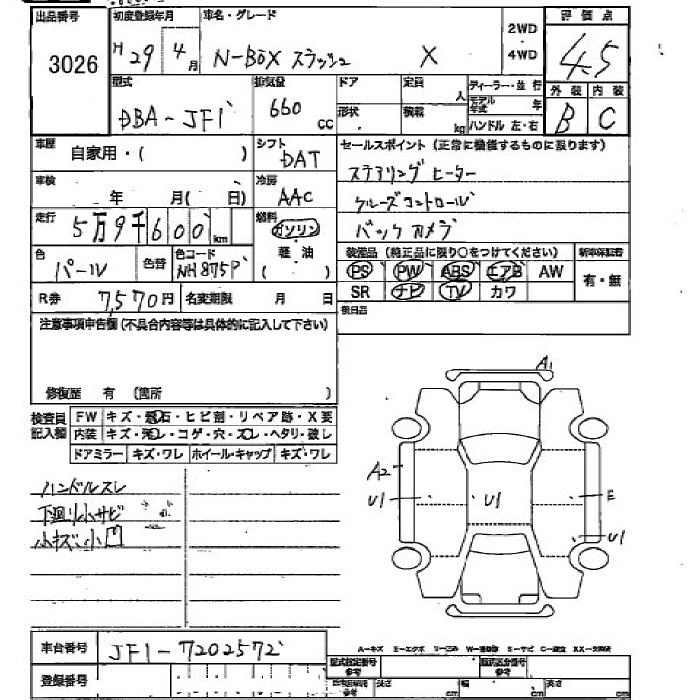 出品番号 初度登録年月 車名・グレード 評価点
3026 H29年4月 N-BOX スラッシュ X 2WD・4WD 4.5
型式 排気量 ドア 定員 人 ディーラー・並行 外装 内装
DBA-JF1 660cc 形状 積載 kg モデル年式 年 B C
ハンドル 左・右
車歴 自家用・( ) シフト DAT セールスポイント(正常に機能するものに限ります)
車検 年 月( 日) 冷房 AAC ステアリングヒーター
クルーズコントロール
走行 5万9千600km 燃料 ガソリン・軽油 ( ) バックカメラ
色 パール 色替 色コード NH875P 装備品(純正品に限り○をつけてください) 新車保証書
PS PW ABS エアB AW 有・無
R券 7,570円 名変期限 月 日 SR ナビ TV カワ
後日品
注意事項申告欄(不具合内容等は具体的に記入して下さい)
修復歴 有 (箇所 )
検査員記入欄 FW キズ・飛石・ヒビ割・リペア跡・X要
内装 キズ・汚レ・コゲ・穴・スレ・ヘタリ・破レ
ドアミラー キズ・ワレ ホイール・キャップ キズ・ワレ
ハンドルスレ
下廻り小サビ
小キズ小凹
A1
A2
U1 U1 E
U1
A-キズ E-エクボ U-凹み W-補修跡 S-サビ C-腐食 XX-交換済
車台番号 JF1-7202572 型式指定番号 参考 類別区分番号 参考
登録番号 長さ cm 幅 cm 高さ cm